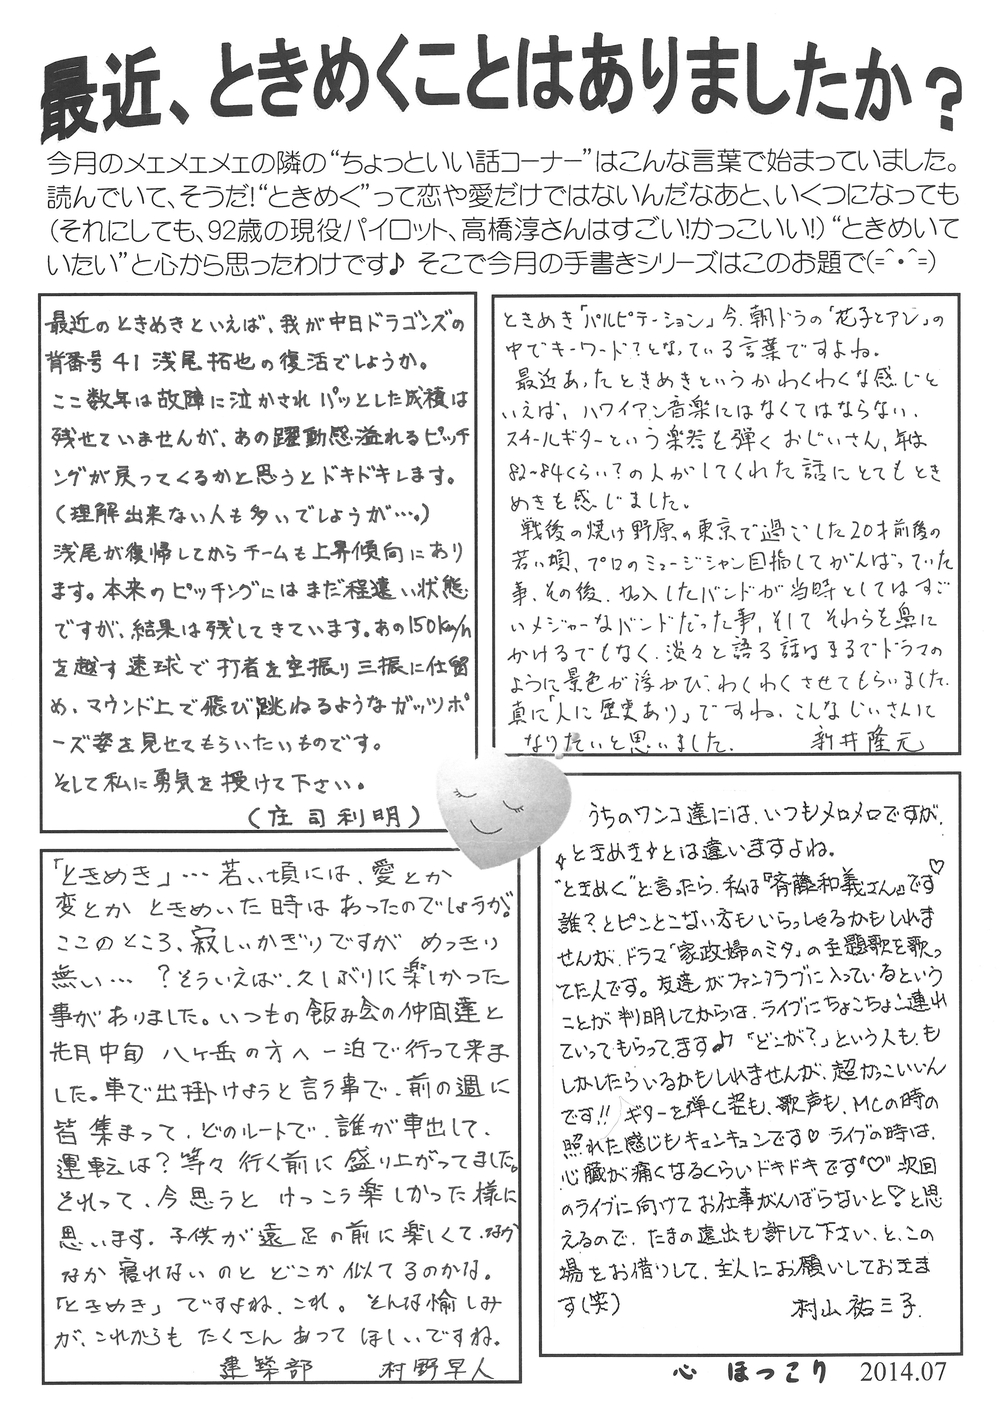 最近、ときめくことはありましたか？
今月のメェメェメェの隣の“ちょっといい話コーナー”はこんな言葉で始まっていました。
読んでいて、そうだ！“ときめぐ”って恋や愛だけではないんだなあと、いくつになっても
（それにしても、92歳の現役パイロット、高橋淳さんはすごい！かっこいい！）“ときめいて
いたい”と心から思ったわけです♪ そこで今月の手書きシリーズはこのお題で(=^・^=)
最近のときめきといえば、我が中日ドラゴンズの
背番号41 浅尾拓也の復活でしょうか。
ここ数年は故障に泣かされパッとした成積は
残せていませんが、あの躍動感溢れるピッチ
ングが戻ってくるかと思うとドキドキします。
（理解出来ない人も多いでしょうが…。）
浅尾が復帰してからチームも上昇傾向にあり
ます。本来のピッチングにはまだ程遠い状態
ですが、結果は残してきています。あの150km/h
を越す速球で打者を空振り三振に仕留
め、マウンド上で飛び跳ねるようなガッツポ
ーズ姿を見せてもらいたいものです。
そして私に勇気を授けて下さい。
（庄司利明）
ときめき「パルピテーション」今、朝ドラの「花子とアン」の
中でキーワード？となっている言葉ですよね。
最近あったときめきというかわくわくな感じと
いえば、ハワイアン音楽にはなくてはならない、
スチールギターという楽器を弾くおじいさん、年は
82~84くらい？の人がしてくれた話にとてもとき
めきを感じました。
戦後の焼け野原の東京で過ごした20才前後の
若い頃、プロのミュージシャン目指してがんばっていた
事、その後、加入したバンドが当時としてはすご
いメジャーなバンドだった事、そして それらを鼻に
かけるでもなく、淡々と語る話はまるでドラマの
ように景色が浮かび、わくわくさせてもらいました。
真に「人に歴史あり」ですね。こんなじいさんに
なりたいと思いました。 新井隆元
「ときめき」… 若い頃には、愛とか
変とか ときめいた時は あったのでしょうが。
ここのところ、寂しいかぎりですが めっきり
無い… ？そういえば、久しぶりに楽しかった
事がありました。いつもの飲み会の仲間達と
先月中旬 八ヶ岳の方へ一泊で行って来ま
した。車で出掛けようと言う事で、前の週に
皆集まって、どのルートで、誰が車出して、
運転は？等々 行く前に盛り上がってました。
それって、今思うと けっこう楽しかった様に
思います。子供が遠足の前に楽しくて、なか
なか寝れないのと どこか似てるのかな。
「ときめき」ですよね、これ。そんな愉しみ
が、これからも たくさん あって ほしいですね。
建築部 村野早人
うちのワンコ達には、いつもメロメロですが、
ときめきとは違いますよね。
“ときめく”と言ったら、私は『斉藤和義さん』です♡
誰？とピンとこない方もいらっしゃるかもしれま
せんが、ドラマ「家政婦のミタ」の主題歌を歌っ
てた人です。友達がファンクラブに入っているという
ことが判明してからは、ライブにちょこちょこ連れ
ていってもらってます♪「どこが？」という人も、も
しかしたらいるかもしれませんが、超かっこいいん
です!! ギターを弾く姿も、歌声も、MCの時の
照れた感じもキュンキュンです♡ ライブの時は、
心臓が痛くなるくらいドキドキです“♡”次回
のライブに向けてお仕事がんばらないと!と思
えるので、たまの遠出も許して下さい、と、この
場をお借りして、主人にお願いしておきま
す（笑） 村山祐三子
心 ほっこり 2014.07